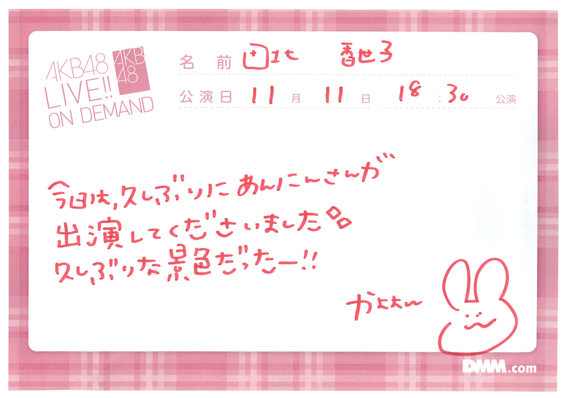 AKB48
LIVE!!
ON DEMAND
AKB
48
名前 田北 香世子
公演日 11月 11日 18:30 公演
今日は、久しぶりにあんにんさんが
出演してくださいました
久しぶりな景色だったー!!
かよよん
DMM.com